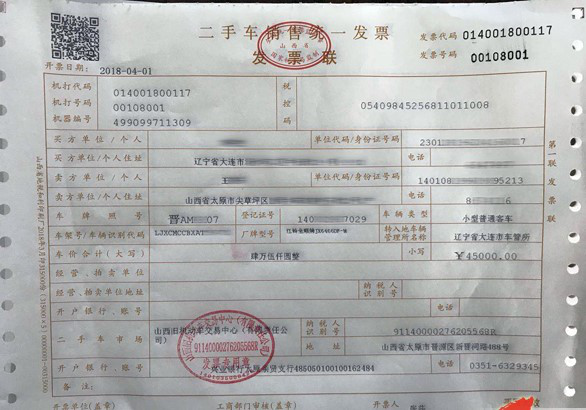 二手车销售统一发票
发票联
发票代码 014001800117
发票号码 00108001
开票日期: 2018-04-01
机打代码 014001800117
机打号码 00108001
机器编号 499099711309
税控码 05409845256811011008
买方单位/个人
单位代码/身份证号码 2301 7
买方单位/个人住址 辽宁省大连市 电话
卖方单位/个人 单位代码/身份证号码 140108 95213
卖方单位/个人住址 山西省太原市尖草坪区 电话 8 6
车牌照号 晋AM 07 登记证号 140 7029 车辆类型 小型普通客车
车架号/车辆识别代码 LJXCMCCBXAT 厂牌型号 转入地车辆管理所名称 辽宁省大连市车管所
车价合计(大写) 肆万伍仟圆整 小写 ￥45000.00
经营、拍卖单位
经营、拍卖单位地址 纳税人识别号
开户银行、账号 电话
二手车市场 山西旧机动车交易中心(有限责任公司) 纳税人识别号 91140000276205568R
地址 山西省太原市晋源区新晋祠路488号
开户银行、账号 兴业银行太原奉贤支行485050100100162484 电话 0351-6329345
备注:
开票单位(盖章) 工商部门审核(盖章) 开票人
91140000276205568R
发票专用章